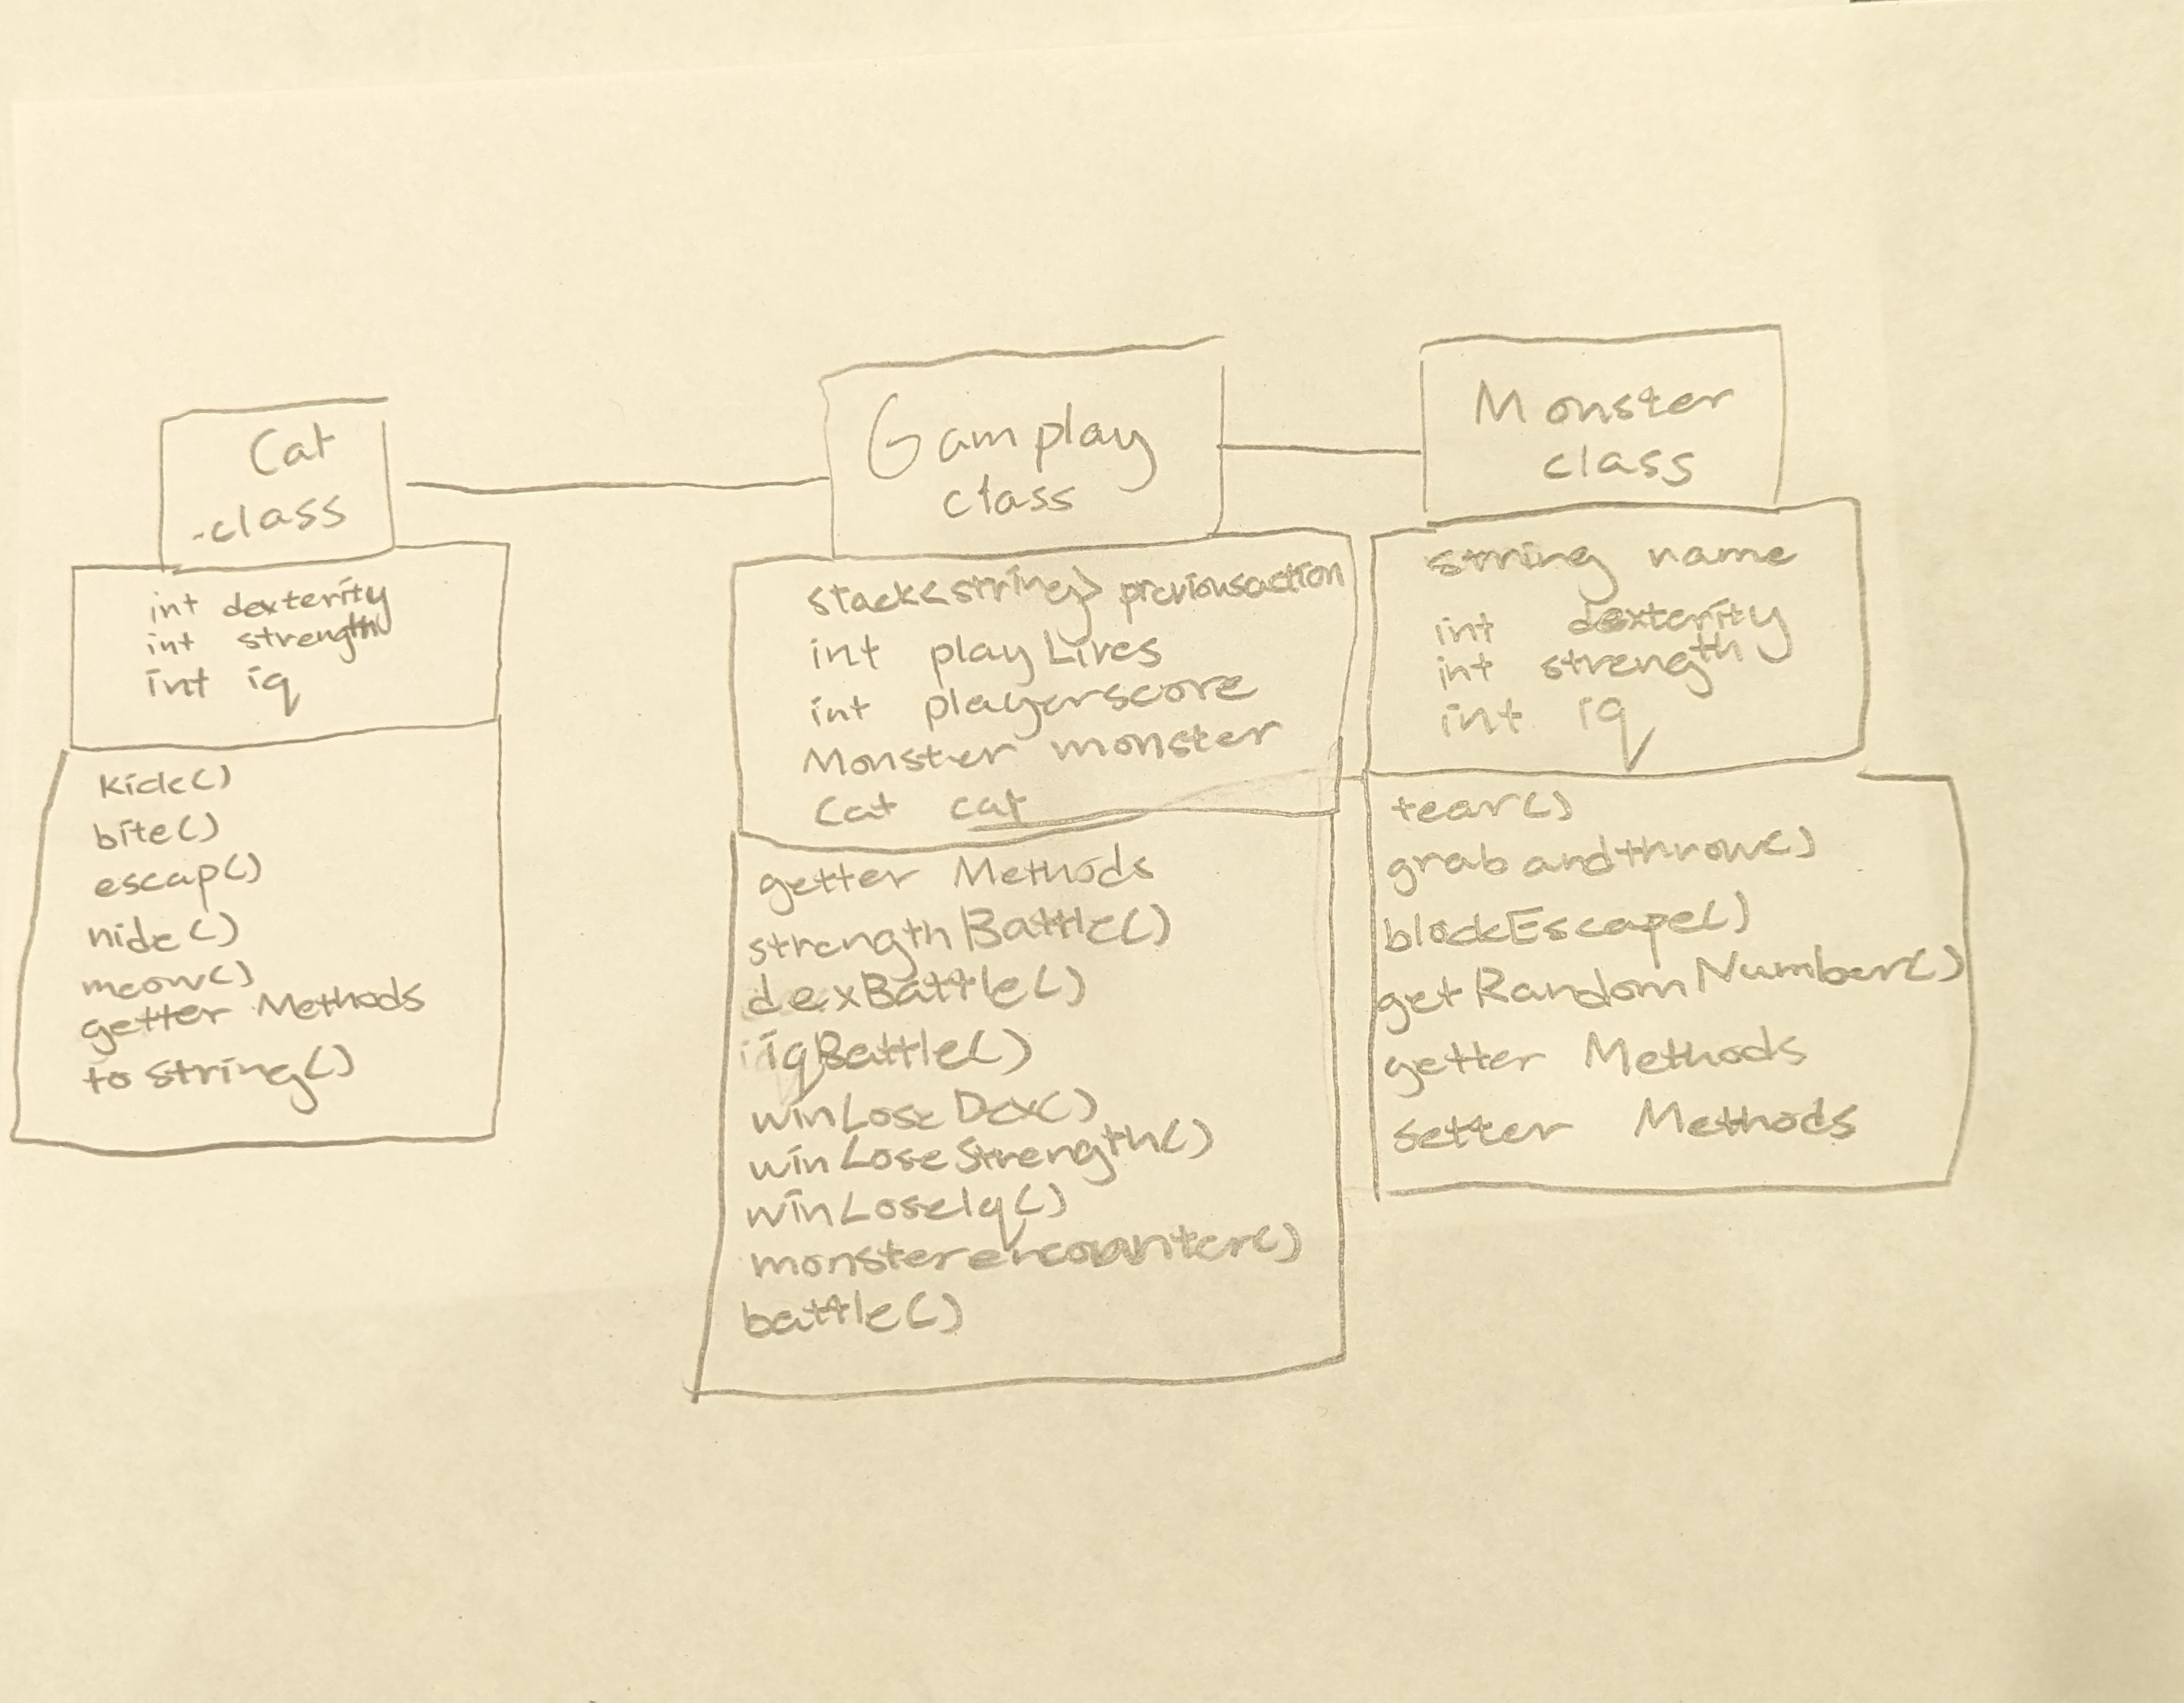 Cat
class
int dexterity
int strength
int iq
kick()
bite()
escap()
hide()
meow()
getter Methods
toString()
Gamplay
class
stack<string> previousaction
int playLives
int playerscore
Monster monster
Cat cat
getter Methods
strengthBattle()
dexBattle()
iqBattle()
winLoseDex()
winLoseStrength()
winLoseIq()
monsterencounter()
battle()
Monster
class
string name
int dexterity
int strength
int iq
tear()
grabandthrow()
blockEscape()
getRandomNumber()
getter Methods
setter Methods